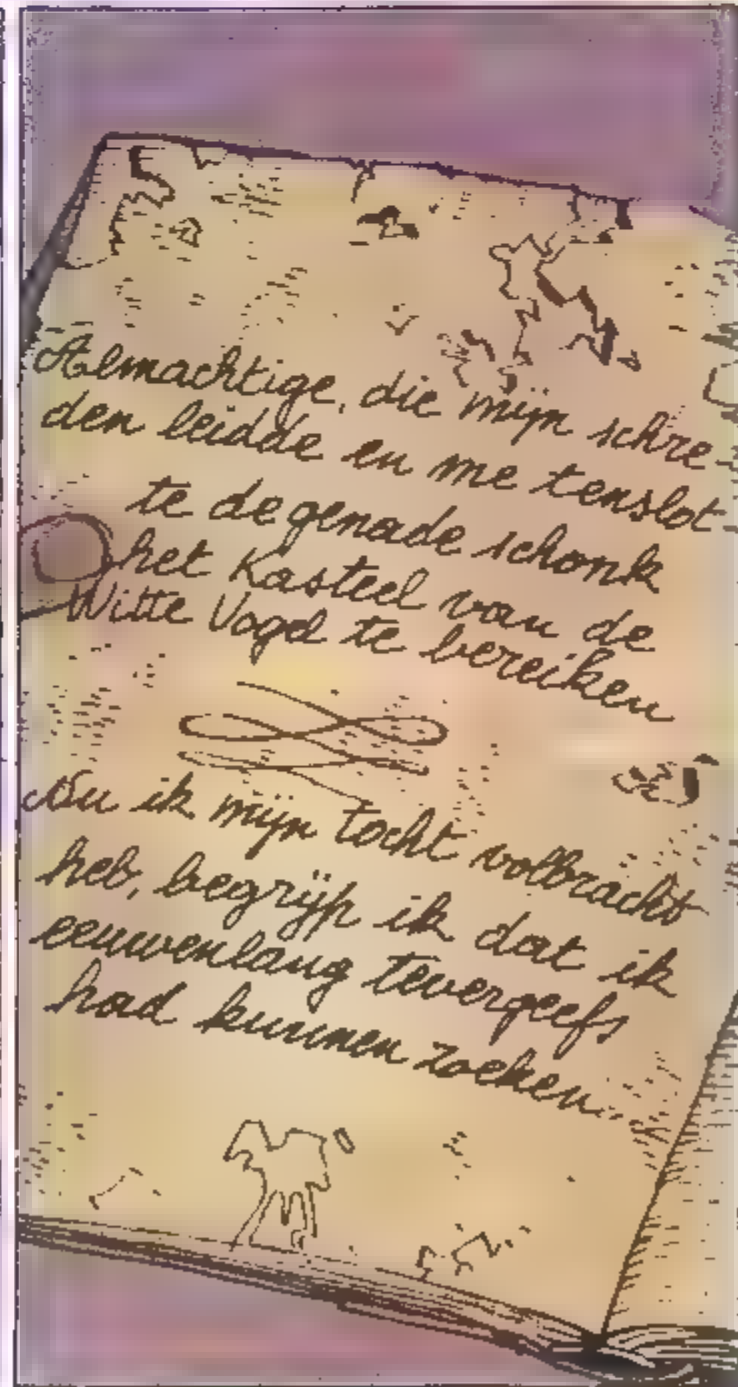 Almachtige, die mijn schre-
den leidde en me tenslot-
te de genade schonk
het Kasteel van de
Witte Vogel te bereiken
Nu ik mijn tocht volbracht
heb, begrijp ik dat ik
eeuwenlang tevergeefs
had kunnen zoeken...